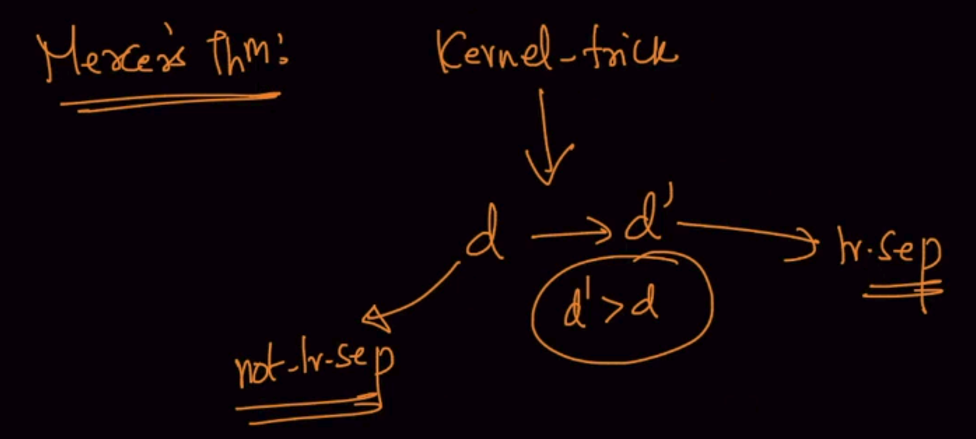 Mercer's Thm:
Kernel-trick
d → d'
lr.sep
d' > d
not-lr-sep